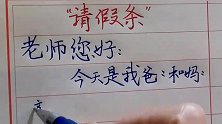 “请假条”
老师您好:
今天是我爸:和妈: